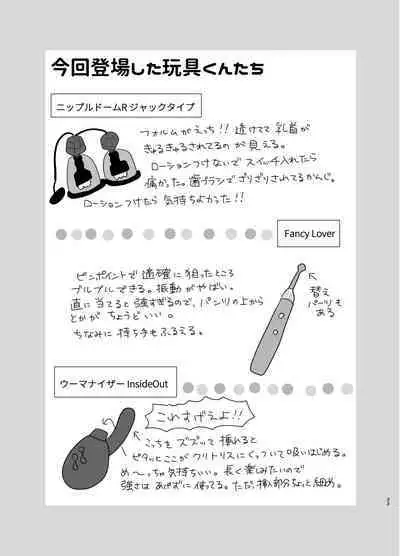 今回登場した玩具くんたち
ニップルドームR ジャックタイプ
フォルムがえっち!! 透けてて 乳首が
きゅるきゅるされてるのが 見える。
ローションつけないで スイッチ入れたら
痛かった。歯ブラシで、ゴリゴリされてるかんじ。
ローションつけたら 気持ちよかった!!
Fancy Lover
ピンポイントで 適確に 狙ったところ
ブルブルできる。振動がやばい。
直に当てると 強すぎるので、パンツの上から
とかが ちょうどいい。
ちなみに 持ち手もふるえる。
替え
パーツも
ある
ウーマナイザー InsideOut
これすげえよ!!
こっちを ズブッて 挿れると
ピタッとここが クリトリスにくっついて吸いはじめる。
め〜っちゃ気持ちいい。長く楽しみたいので
強さは あげずに 使ってる。ただ、挿入部分ちょっと細め。